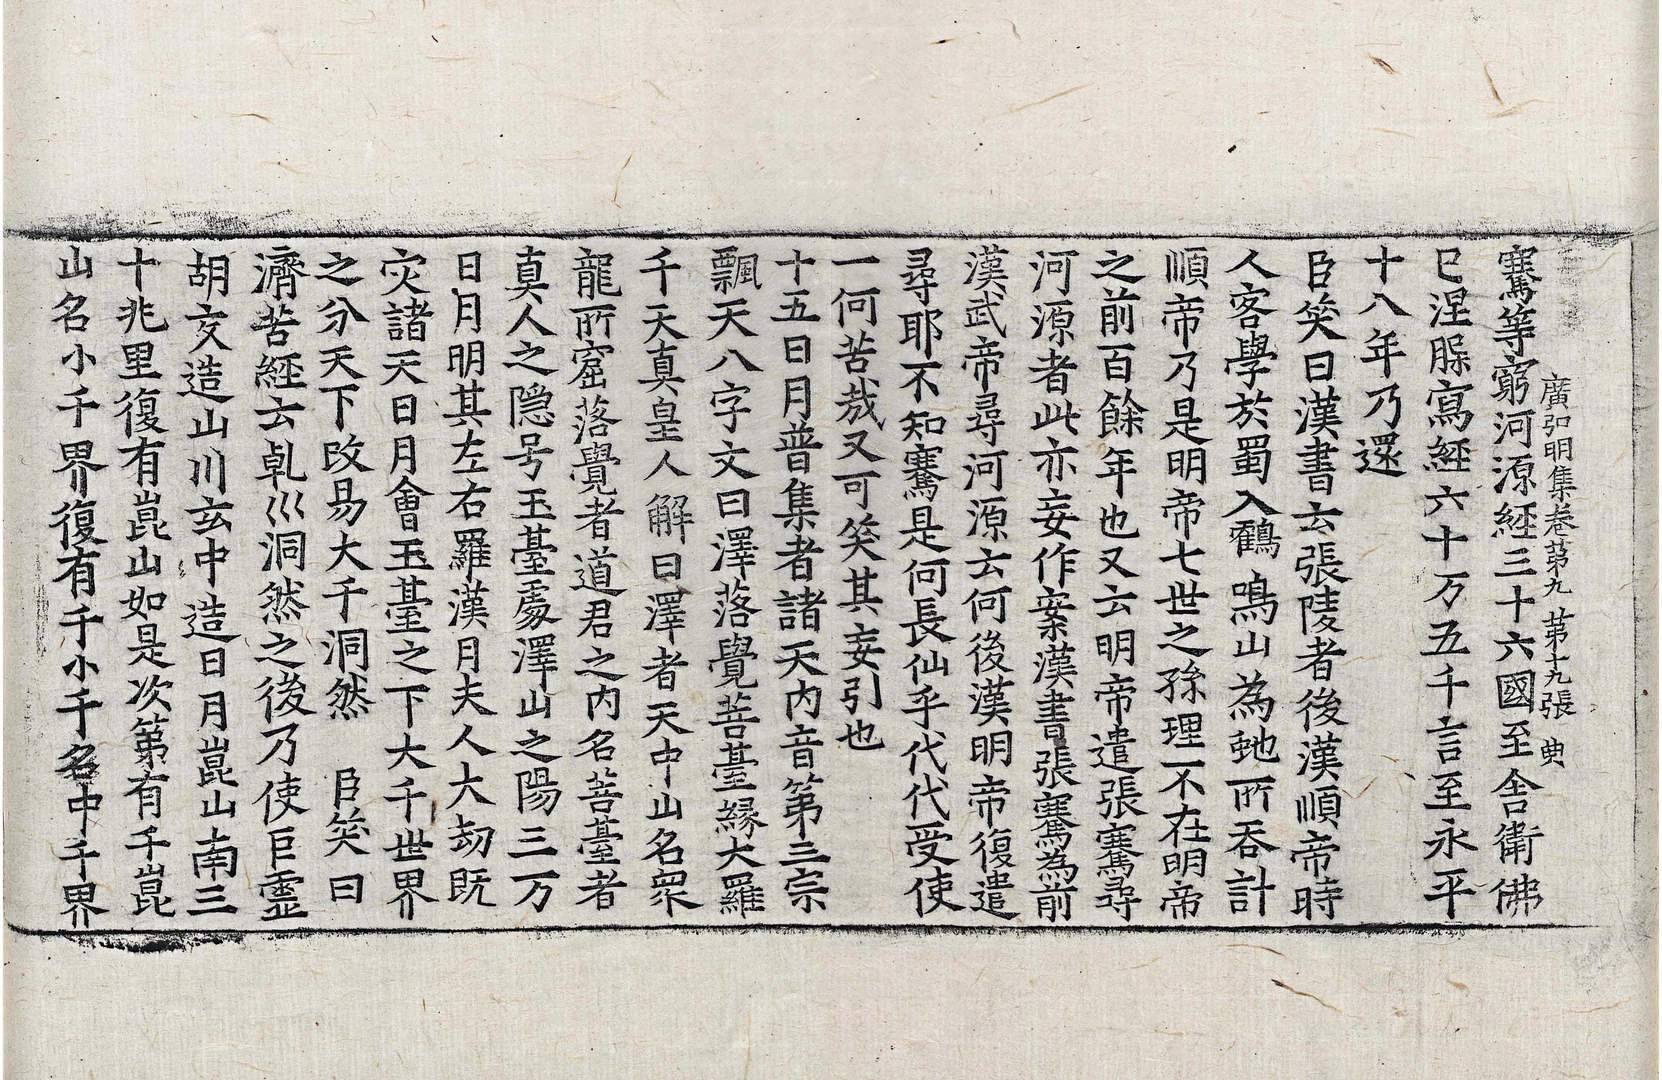 廣弘明集卷第九　第十九張　典
騫等窮河源經三十六國至舍衛佛
已涅脲寫經六十万五千言至永平
十八年乃還
臣笑曰漢書云張陵者後漢順帝時
人客學於蜀入鸖鳴山為虵所吞計
順帝乃是明帝七世之孫理不在明帝
之前百餘年也又云明帝遣張騫尋
河源者此亦妄作案漢書張騫為前
漢武帝尋河源云何後漢明帝復遣
尋耶不知騫是何長仙乎代代受使
一何苦哉又可笑其妄引也
十五日月普集者諸天內音第三宗
飄天八字文曰澤落覺菩臺緣大羅
千天真皇人解曰澤者天中山名衆
龍所窟落覺者道君之內名菩臺者
真人之隱号玉臺處澤山之陽三万
日月明其左右羅漢月夫人大劫既
灾諸天日月會玉臺之下大千世界
之分天下改易大千洞然　臣笑曰
濟苦經云乹巛洞然之後乃使巨靈
胡亥造山川玄中造日月崑山南三
十兆里復有崑山如是次第有千崑
山名小千界復有千小千名中千界